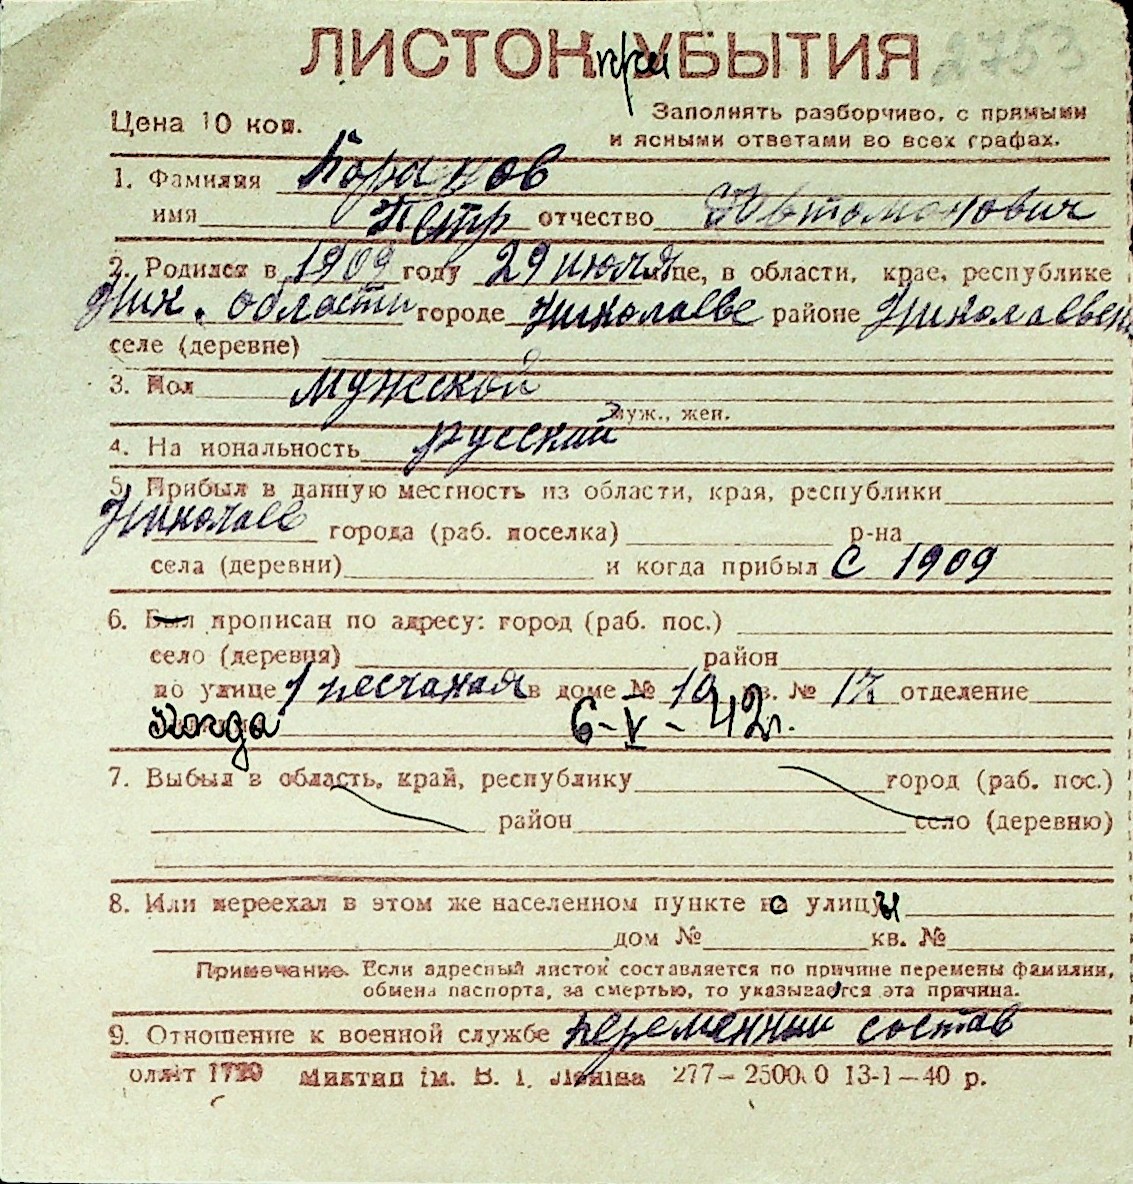 ЛИСТОК при УБЫТИЯ 2753
Цена 10 коп. Заполнять разборчиво, с прямыми
и ясными ответами во всех графах.
1. Фамилия Баранов
имя Петр отчество Автомонович
2. Родился в 1909 году 29 июля м-це, в области, крае, республике
Ник. области городе Николаеве районе Николаевск
селе (деревне)
3. Пол мужской
муж., жен.
4. Национальность русский
5. Прибыл в данную местность из области, края, республики
Николаев города (раб. поселка) р-на
села (деревни) и когда прибыл с 1909
6. Был прописан по адресу: город (раб. пос.)
село (деревня) район
по улице 1 песчаная в доме № 10 кв. № отделение
когда 6-V-42г.
7. Выбыл в область, край, республику город (раб. пос.)
район село (деревню)
8. Или переехал в этом же населенном пункте с улицы
дом № кв. №
Примечание. Если адресный листок составляется по причине перемены фамилии,
обмена паспорта, за смертью, то указывается эта причина.
9. Отношение к военной службе переменный состав
їм. В. І. Леніна 277—25000 13-1—40 р.